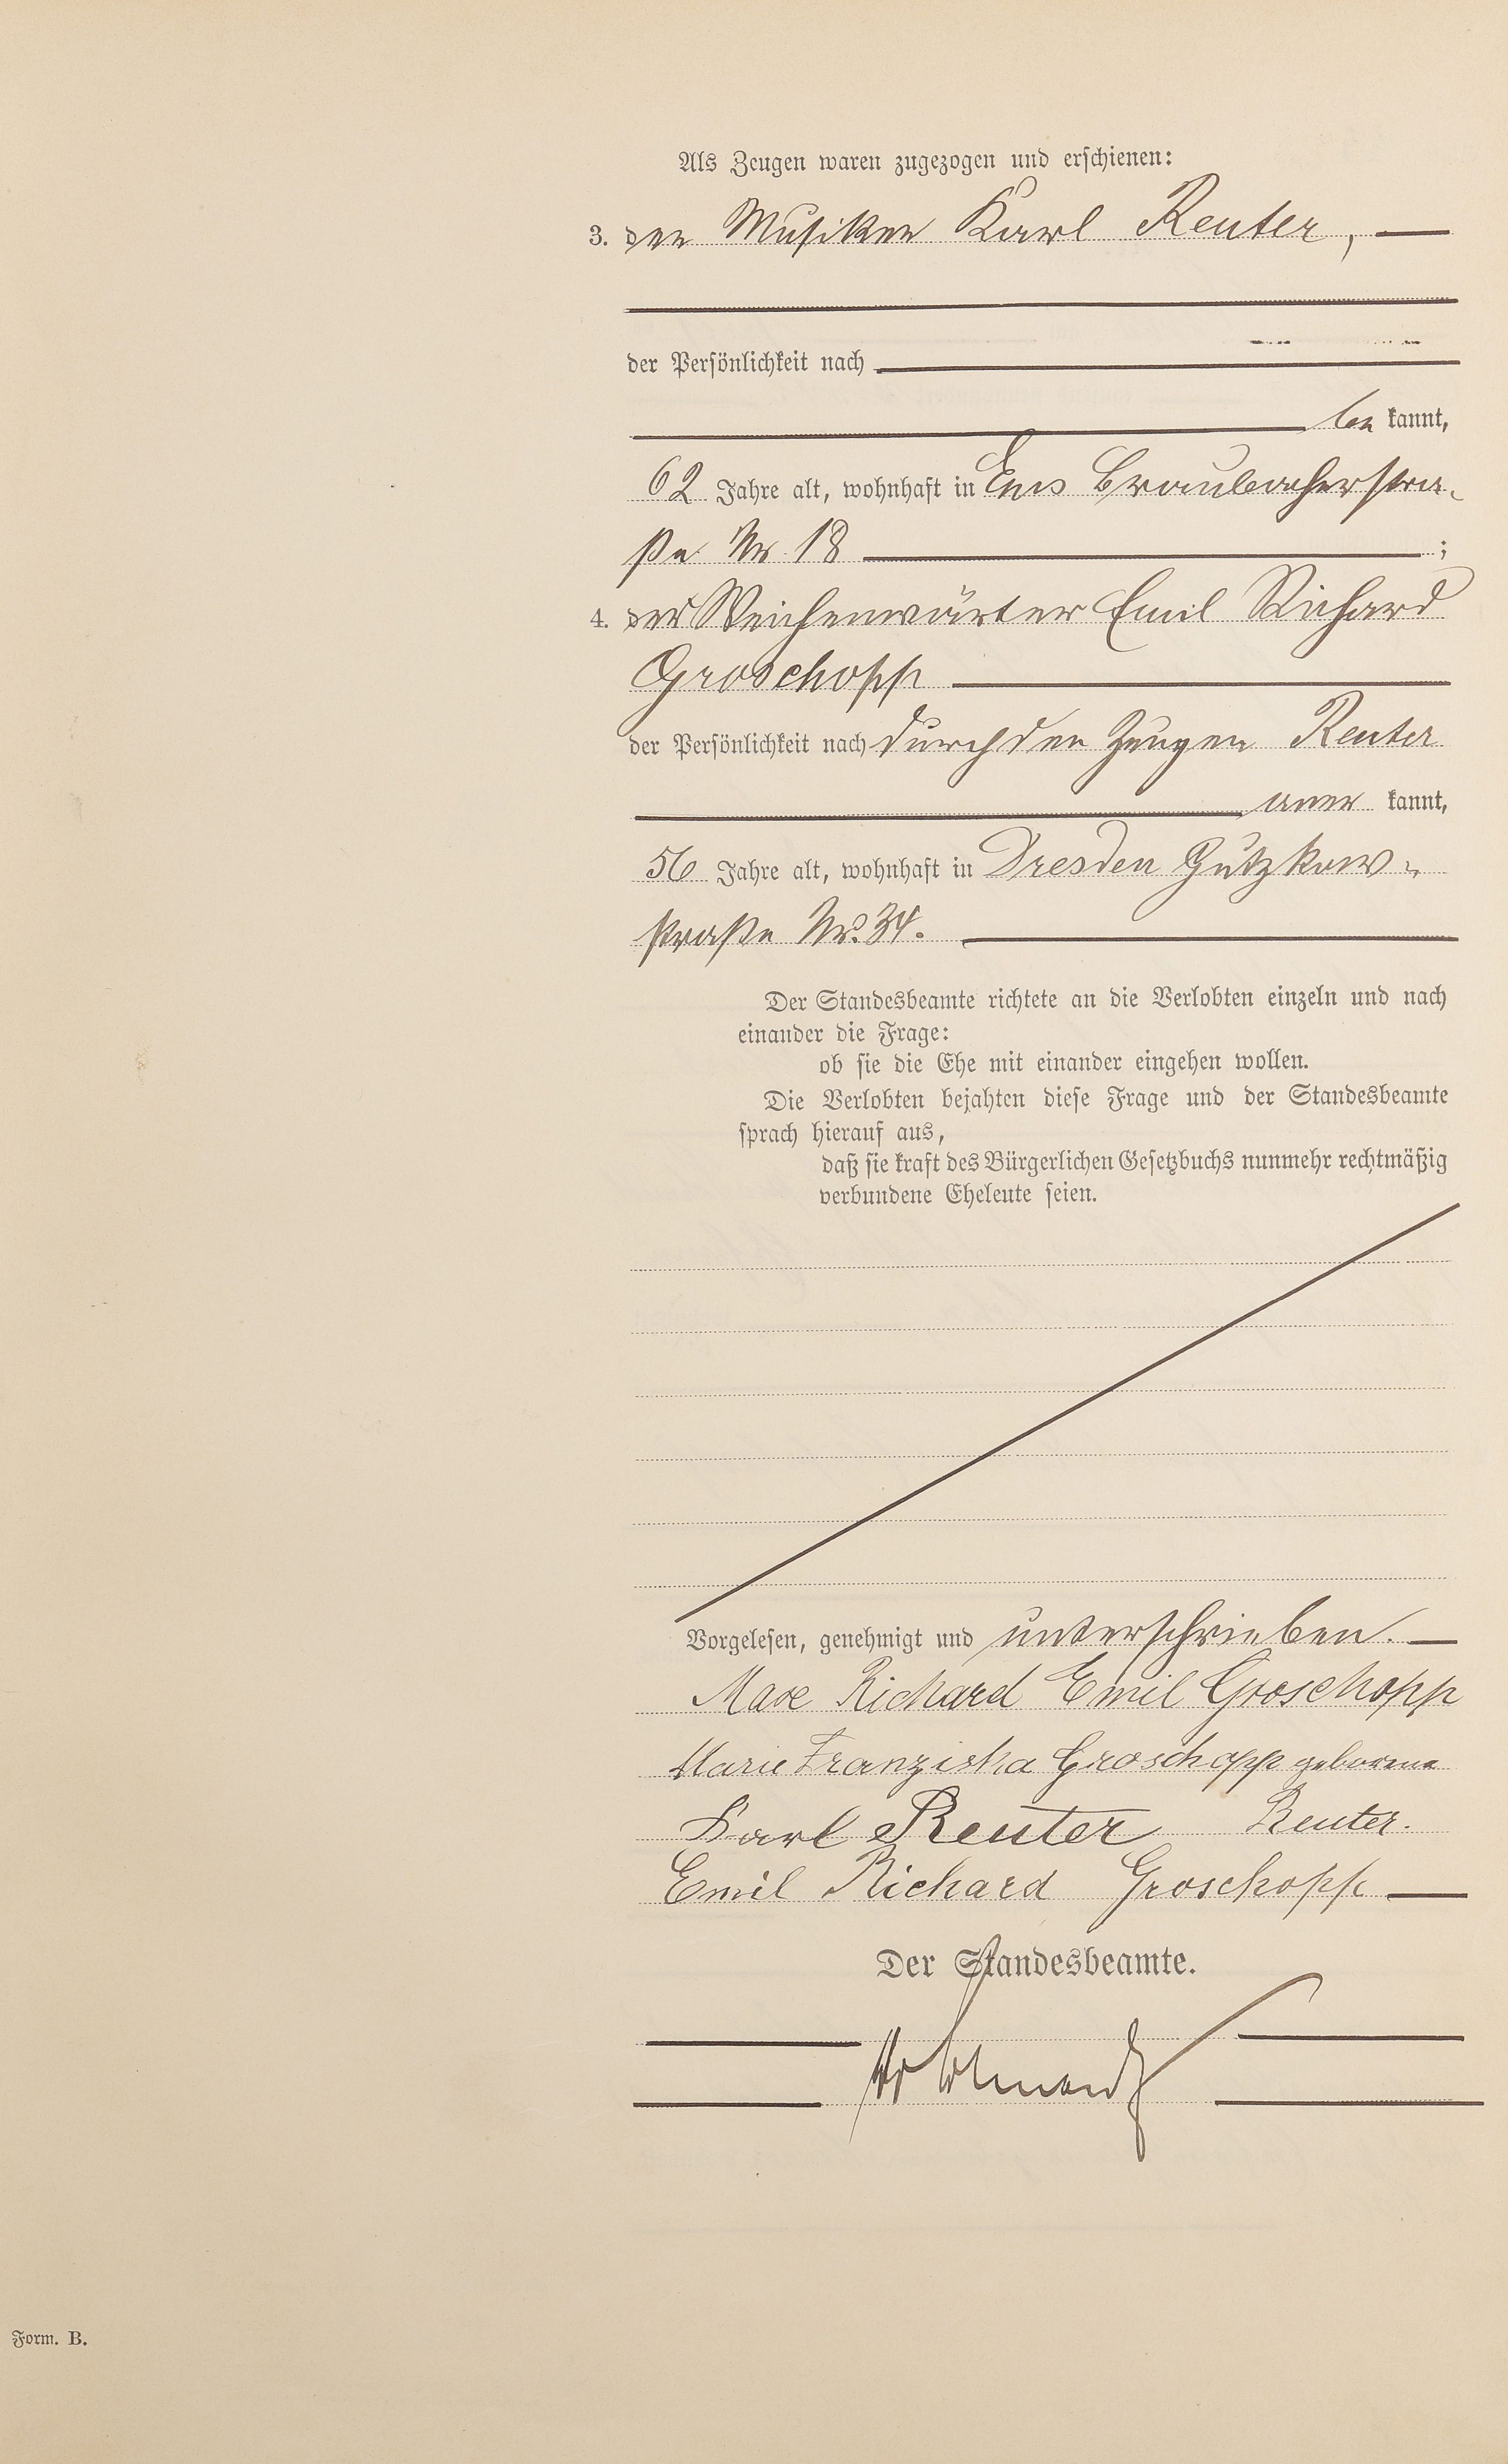 Als Zeugen waren zugezogen und erschienen:
3. der Musiker Karl Reuter,
der Persönlichkeit nach
be kannt,
62 Jahre alt, wohnhaft in Ems Braubacherstra-
ße Nr. 18 ;
4. der Weichenwärter Emil Richard
Groschopp
der Persönlichkeit nach durch den Zeugen Reuter
aner kannt,
56 Jahre alt, wohnhaft in Dresden Gutzkow-
straße Nr. 34.
Der Standesbeamte richtete an die Verlobten einzeln und nach
einander die Frage:
ob sie die Ehe mit einander eingehen wollen.
Die Verlobten bejahten diese Frage und der Standesbeamte
sprach hierauf aus,
daß sie kraft des Bürgerlichen Gesetzbuchs nunmehr rechtmäßig
verbundene Eheleute seien.
Vorgelesen, genehmigt und unterschrieben.
Max Richard Emil Groschopp
Marie Franziska Groschopp geborene
Karl Reuter Reuter.
Emil Richard Groschopp
Der Standesbeamte.
Form. B.